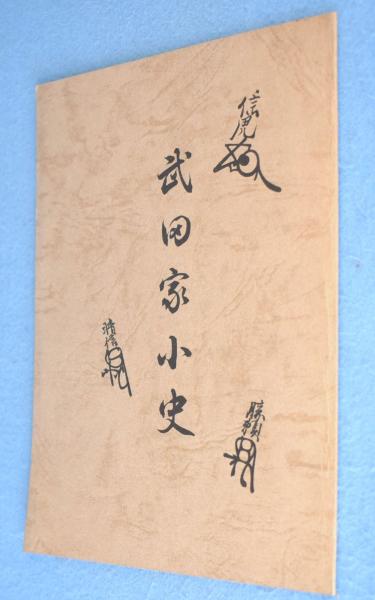 武田家小史
信虎
晴信
勝頼